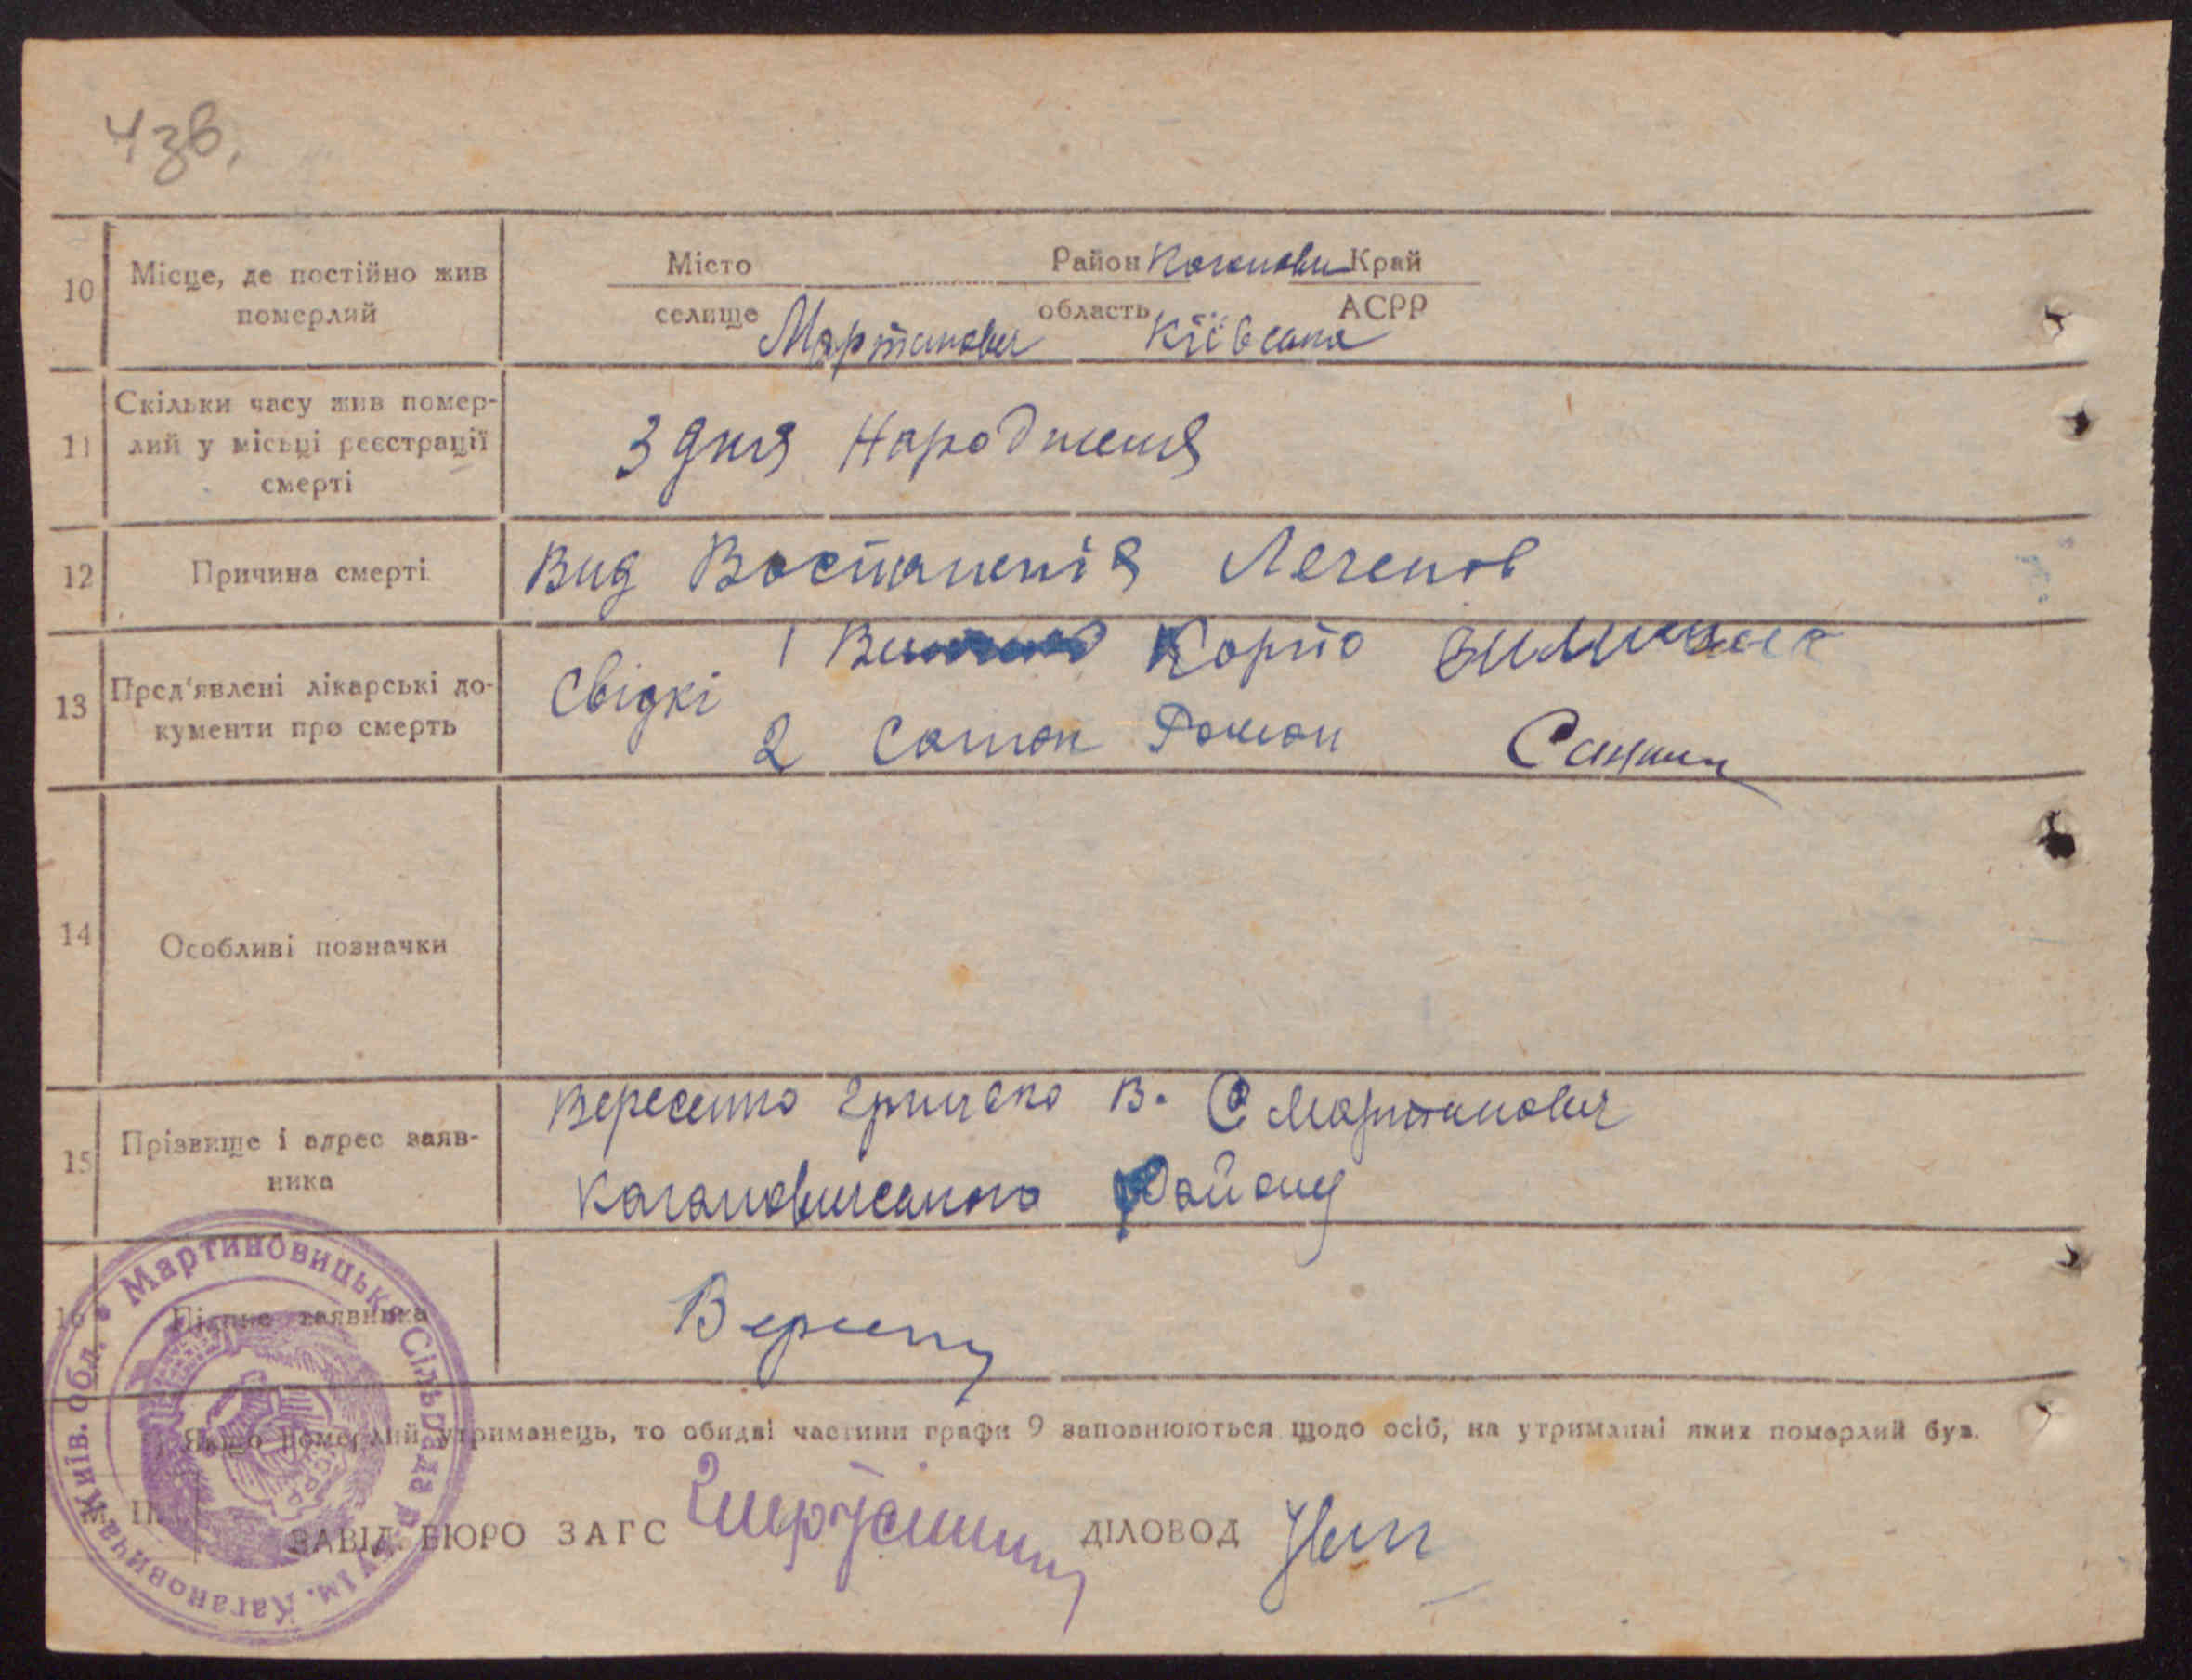 Ч зв.
10 Місце, де постійно жив померлий
Місто Район Каганови Край
селище Мартинович область Київська АСРР
11 Скільки часу жив помер-
лий у місьці реєстрації
смерті
З дня Народження
12 Причина смерті
Вид Воспаленія Легенов
13 Пред'явлені лікарські до-
кументи про смерть
Свідкі 1 Карпо
2 Роман
14 Особливі позначки
15 Прізвище і адрес заяв-
ника
В. С Мартинович
Кагановичського Району
16 Підпис заявника
Якщо померлий утриманець, то обидві частини графи 9 заповнюються щодо осіб, на утриманні яких померлий був.
М. П.
ЗАВІД. БЮРО ЗАГС ДІЛОВОД
Мартиновицька Сільрада р-ну ім. Кагановича Київ. обл.